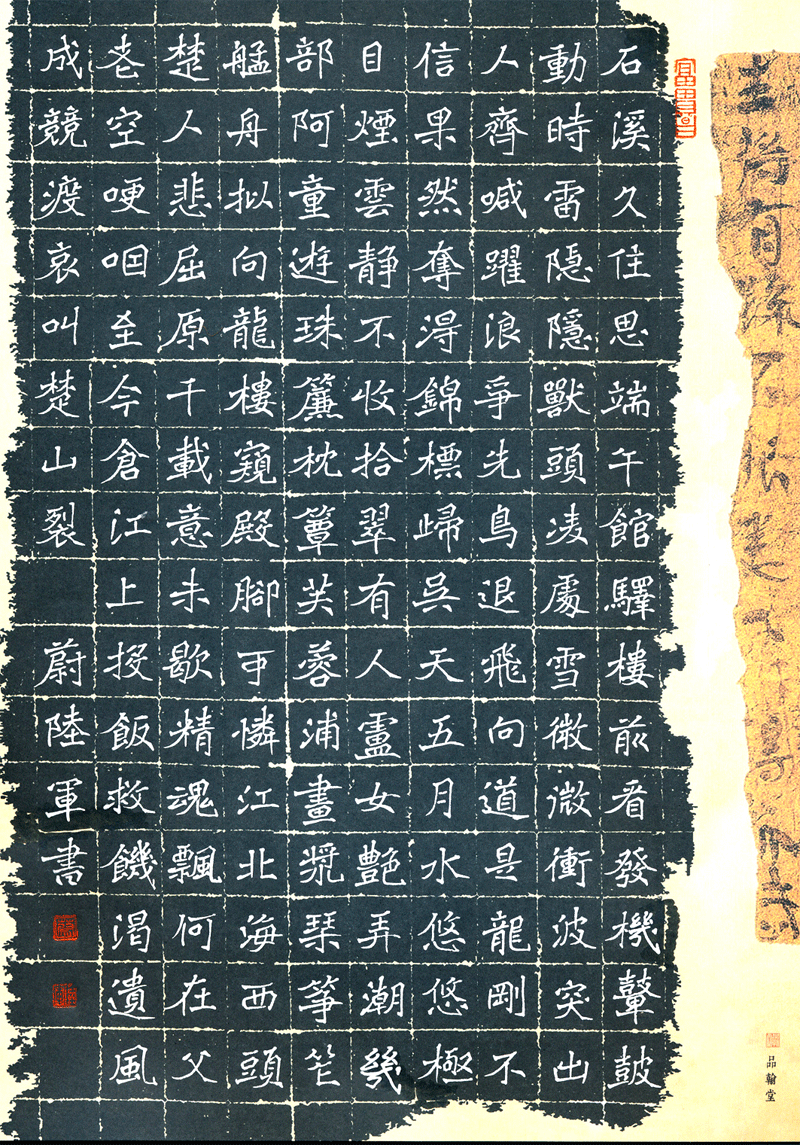 石溪久住思端午館驛樓前看發機鼙鼓
動時雷隱隱獸頭凌處雪微微衝波突出
人齊喊躍浪爭先鳥退飛向道是龍剛不
信果然奪得錦標歸吳天五月水悠悠極
目煙雲靜不收拾翠有人盧女艷弄潮幾
部阿童遊珠簾枕簟芙蓉浦畫槳琴箏笮
艋舟拟向龍樓窺殿腳可憐江北海西頭
楚人悲屈原千載意未歇精魂飄何在父
老空哽咽至今倉江上投飯救饑渴遺風
成競渡哀叫楚山裂 蔚陸軍書
品翰堂